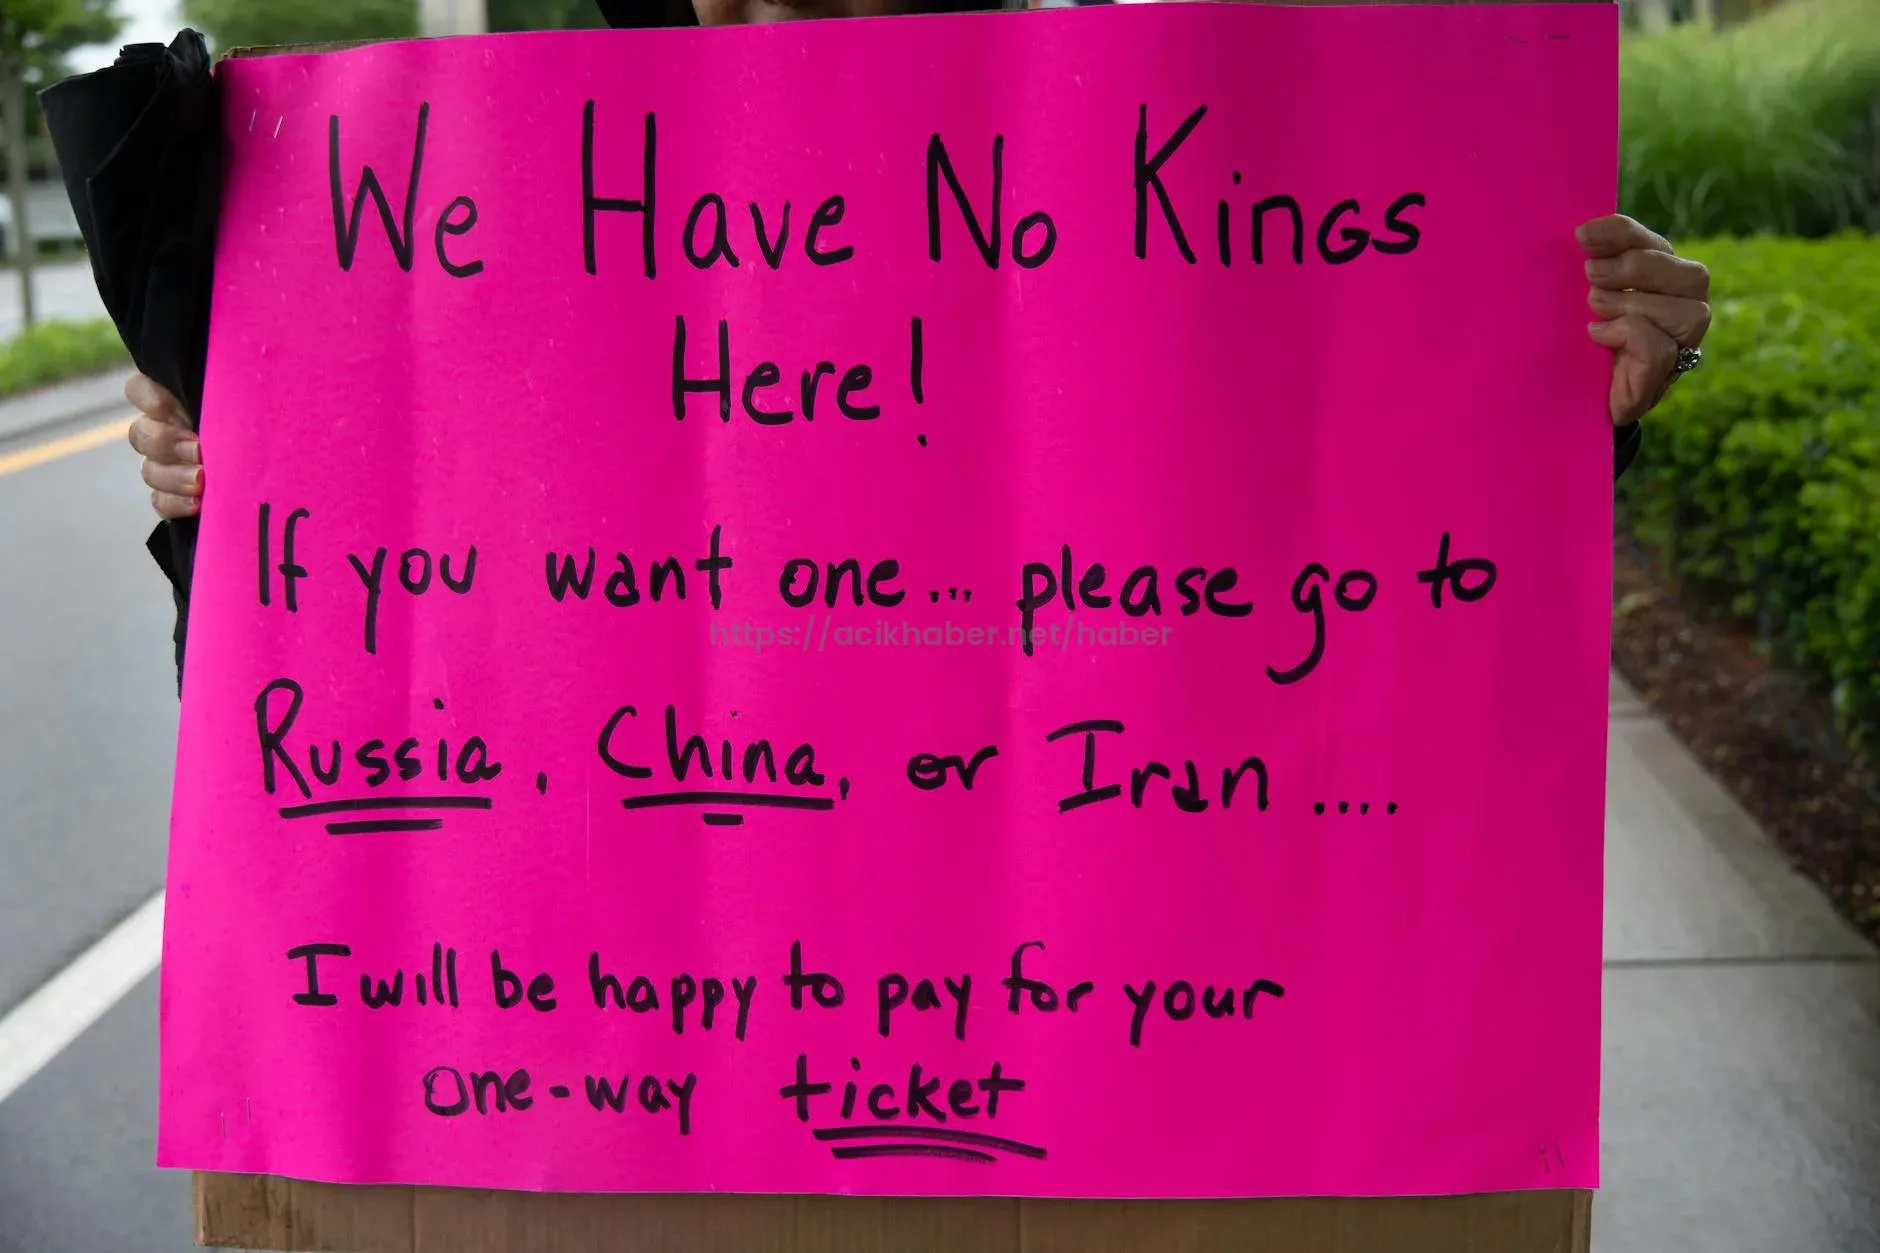 We Have No Kings
Here!
If you want one... please go to
https://acikhaber.net/haber
Russia, China, or Iran ....
I will be happy to pay for your
one-way ticket